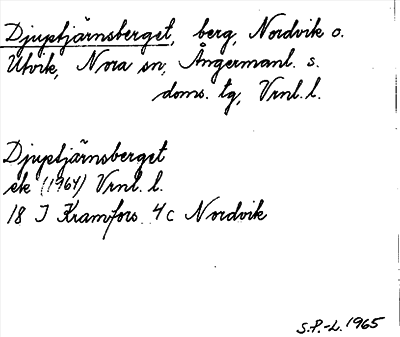 Djuptjärnsberget, berg, Nordvik o.
Utvik, Nora sn, Ångermanl. s.
doms. tg, Vrnl. l.
Djuptjärnsberget
ek (1964) Vrnl. l.
18 I Kramfors 4c Nordvik
S.P.-L. 1965